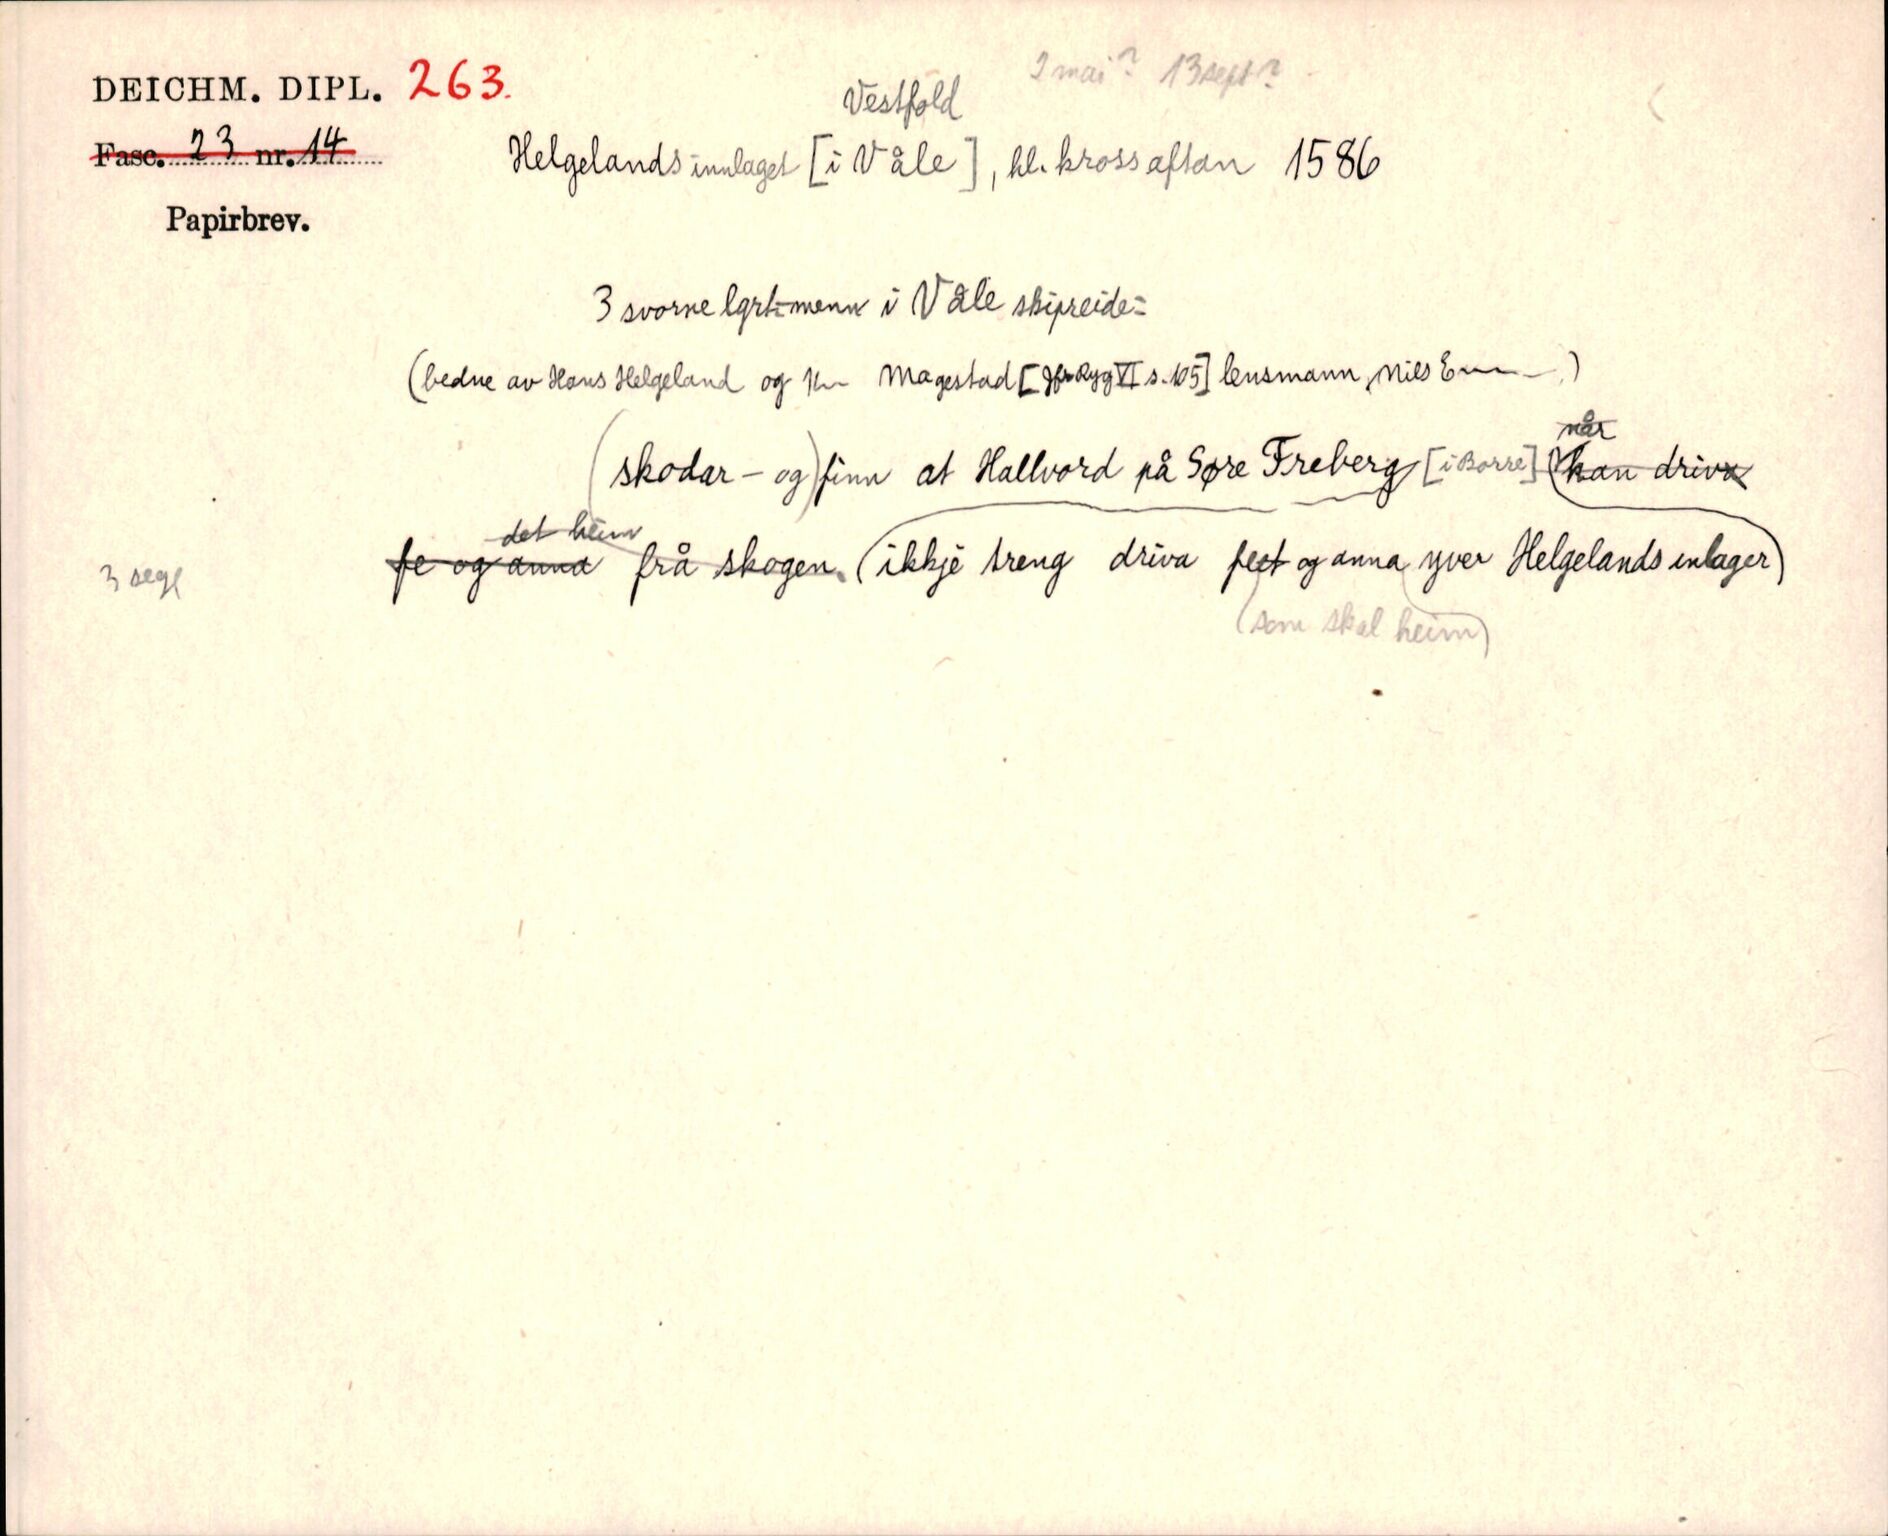 DEICHM. DIPL. 263.
2 mai? 13 sept?
Vestfold
Fasc. 23 nr. 14
Helgelands innlaget [i Våle], hl. krossaftan 1586
Papirbrev.
3 svorne lgrt-menn i Våle skipreide=
(bedne av Hans Helgeland og Magestad [Jfr Ryg VI s. 105] lensmann, Nils E
når
(skodar - og) finn at Hallvord på Søre Freberg [i Borre] (kan driva
det heim
fe og anna frå skogen. (ikkje treng driva feet og anna yver Helgelands inlager)
3 segl
(som skal heim)